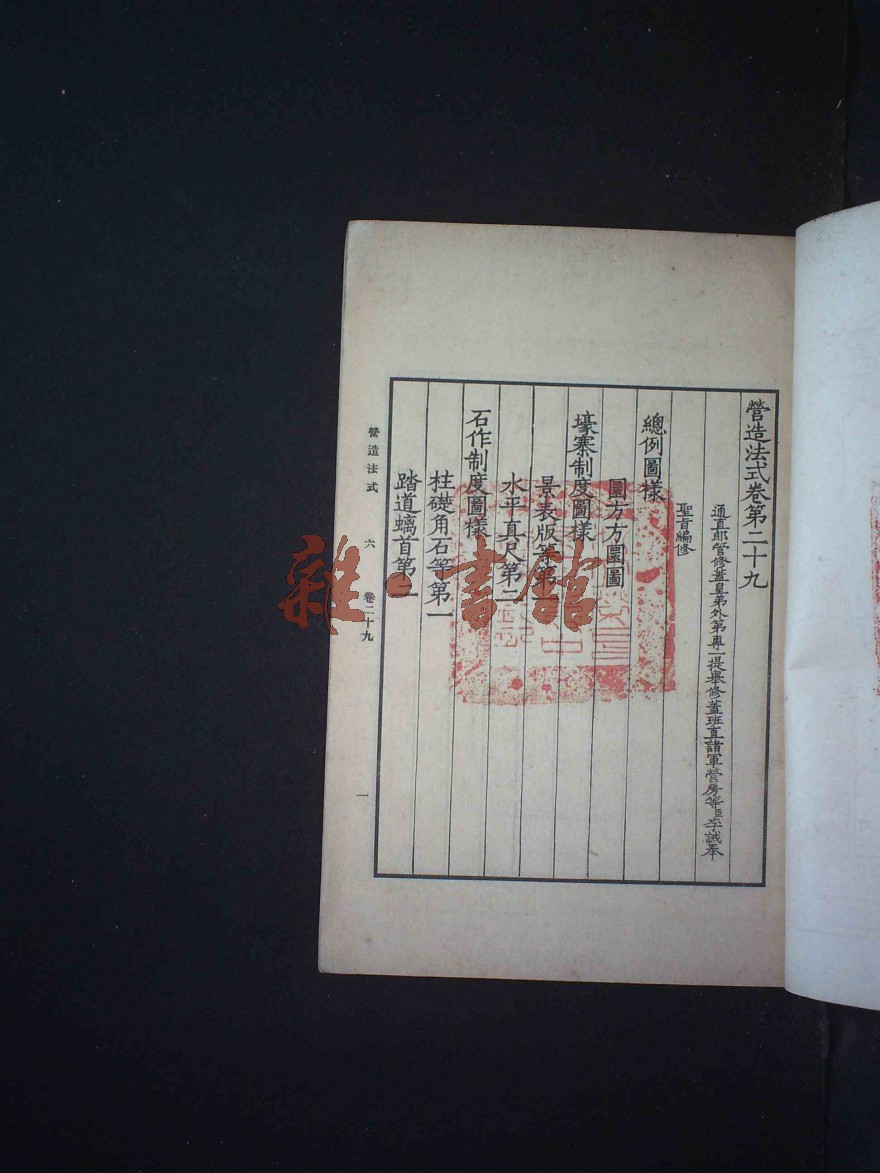 營造法式卷第二十九
通直郎管修蓋皇弟外第專一提舉修蓋班直諸軍營房等臣李誡奉
聖旨編修
總例圖樣
圜方方圜圖
壕寨制度圖樣
景表版等第一
水平真尺第二
石作制度圖樣
柱礎角石等第一
踏道螭首第二
營造法式 六 卷二十九 一
雜·書館